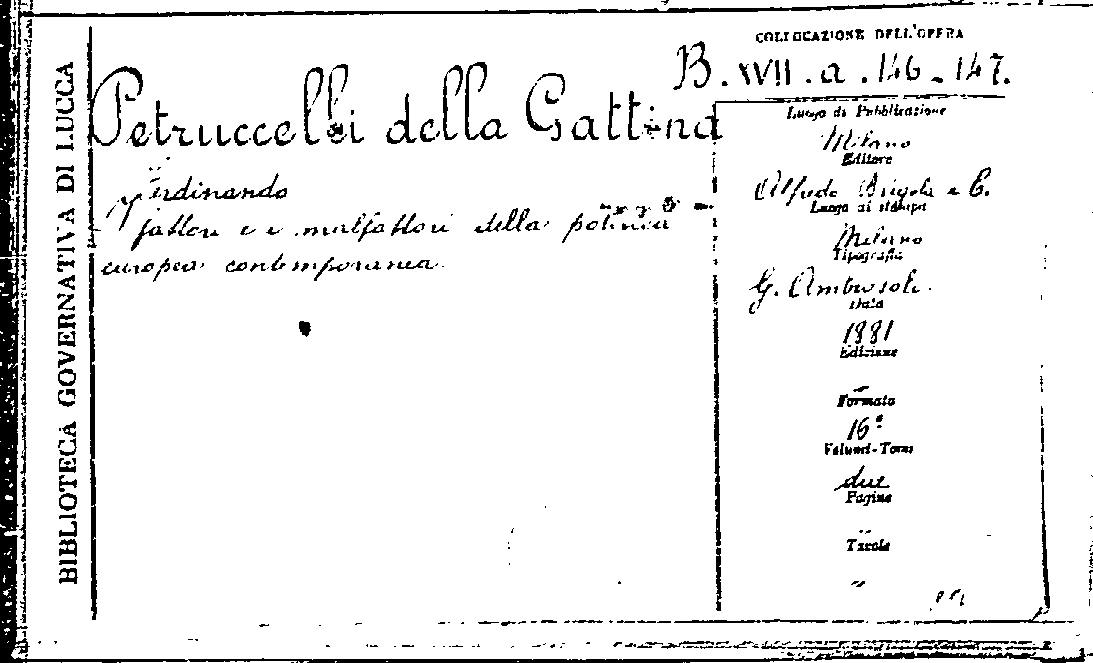 BIBLIOTECA GOVERNATIVA DI LUCCA
COLLOCAZIONE DELL'OPERA
B. XVII. a. 146-147.
Petruccelli della Gattina
Ferdinando
fattori e i malfattori della politica
europea contemporanea.
Luogo di Pubblicazione
Milano
Editore
Alfredo Brigola e C.
Luogo di stampa
Milano
Tipografia
G. Ambrosoli.
Data
1881
Edizione
"
Formato
16°
Volumi-Tomi
due
Pagine
"
Tavole
"